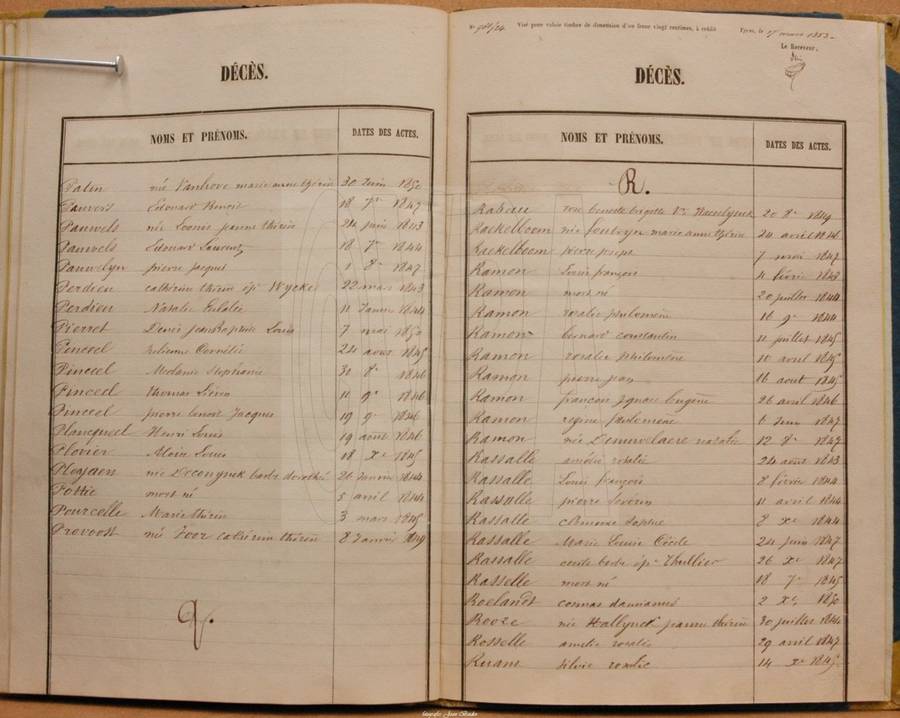 DÉCÈS.
NOMS ET PRÉNOMS. DATES DES ACTES.
Patin née Vanhove marie anne thérèse 30 Juin 1850
Pauwels Edouard Benoit 18 7e 1847
Pauwels née Loonis jeanne thérèse 24 juin 1843
Pauwels Edouard Laurent 18 7e 1844
Pauwelyn pierre jacques 1 8e 1847
Perdieu cathérine thérèse ép Wyckes 22 mars 1843
Perdieu Natalie Eulalie 11 Janvr 1844
Pierret Denis Jean Baptiste Louis 7 mai 1850
Pinceel Julienne Cornélie 24 aout 1845
Pinceel Melanie Stephanie 31 8e 1846
Pinceel thomas Liévin 11 9e 1846
Pinceel pierre benoit Jacques 19 9e 1846
Plancqueel Henri Louis 19 aout 1846
Plovier Aloïs Louis 18 Xe 1845
Ployaen née Deconynck barbe dorothé 26 Janvier 1844
Pottie mort né 5 avril 1844
Pourcelle Marie thérèse 3 mars 1845
Provoost née Joor cathérine thérèse 8 Janvier 1849
Q.
Visé pour valoir timbre de dimension d'un franc vingt centimes, à crédit Ypres, le 17 mars 1853
Le Receveur,
DÉCÈS.
NOMS ET PRÉNOMS. DATES DES ACTES.
R.
rose benoite brigitte Ve 20 8e 1849
Raekelboom née marie anne thérèse 24 avril 1846
Raekelboom pierre joseph 7 mai 1847
Ramon Louis françois 11 février 1843
Ramon mort né 20 juillet 1844
Ramon rosalie philomène 16 9e 1844
Ramon bernard constantin 11 juillet 1845
Ramon rosalie philomène 10 avril 1845
Ramon pierre jean 16 aout 1845
Ramon françois ignace Eugène 26 avril 1846
Ramon régine philomène 6 Juin 1847
Ramon née Demeulaere rosalie 12 8e 1847
Rassalle amélie rosalie 24 aout 1843
Rassalle Louis françois 8 février 1844
Rassalle pierre Séverin 11 avril 1844
Rassalle Clémence Sophie 8 Xe 1844
Rassalle Marie Louise Cécile 24 juin 1847
Rassalle barbe ép Thullier 26 Xe 1847
Rasselle mort né 18 7e 1845
Roelandt cosmas damianus 2 Xe 1850
Rooze née Hallynck jeanne thérèse 30 juillet 1844
Rosselle amelie rosalie 29 avril 1847
Ruans silvie rosalie 14 Xe 1845
fotografie Joan Bouke